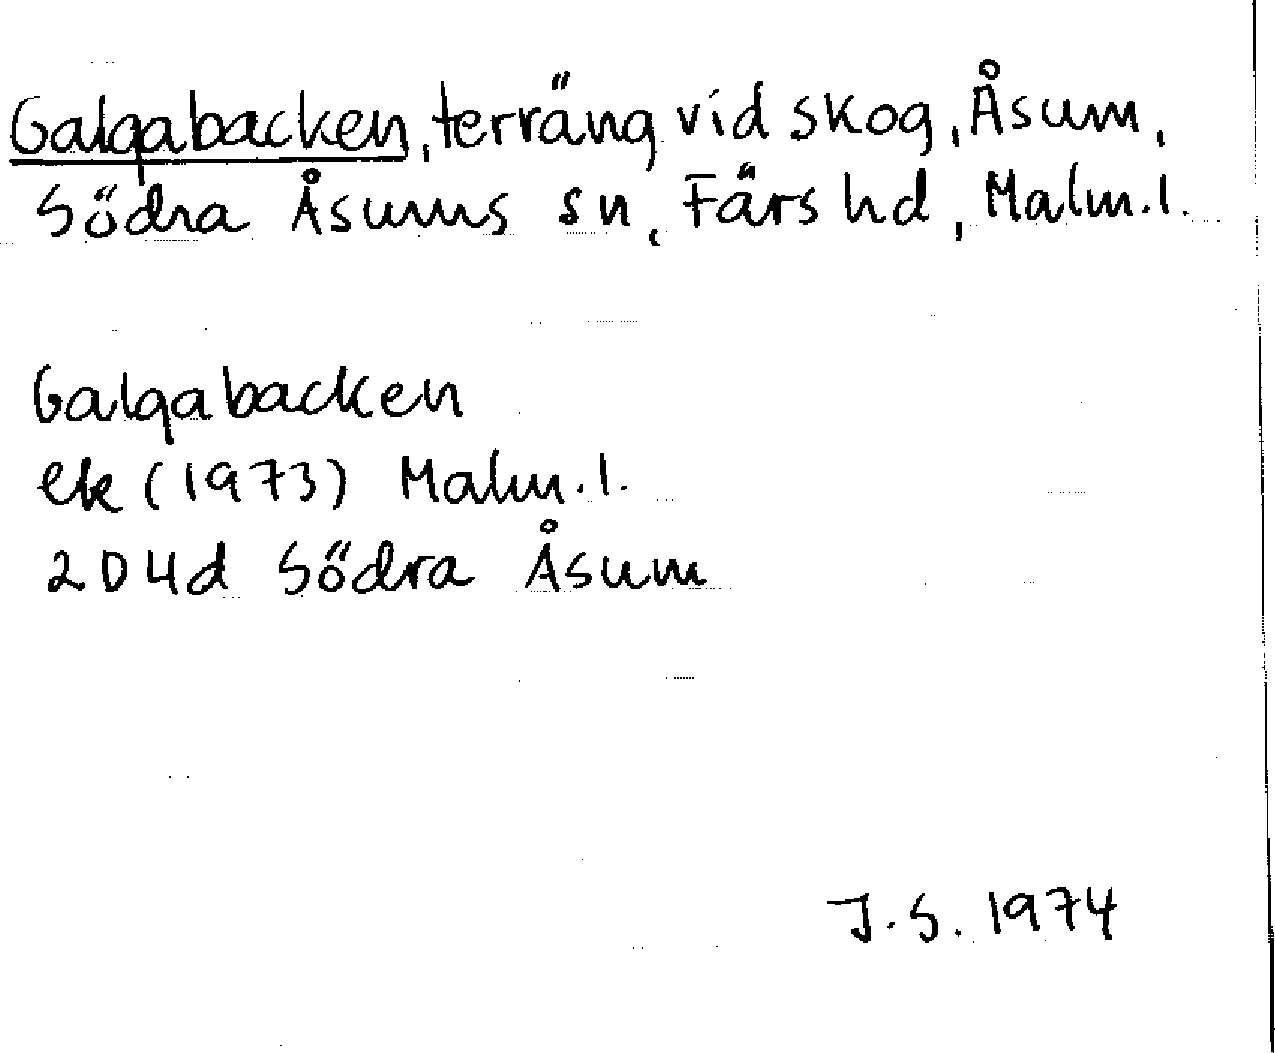 Galgabacken, terräng vid skog, Åsum,
Södra Åsums sn, Färs hd, Malm.l.
Galgabacken
ek (1973) Malm.l.
2D4d Södra Åsum
J.S. 1974